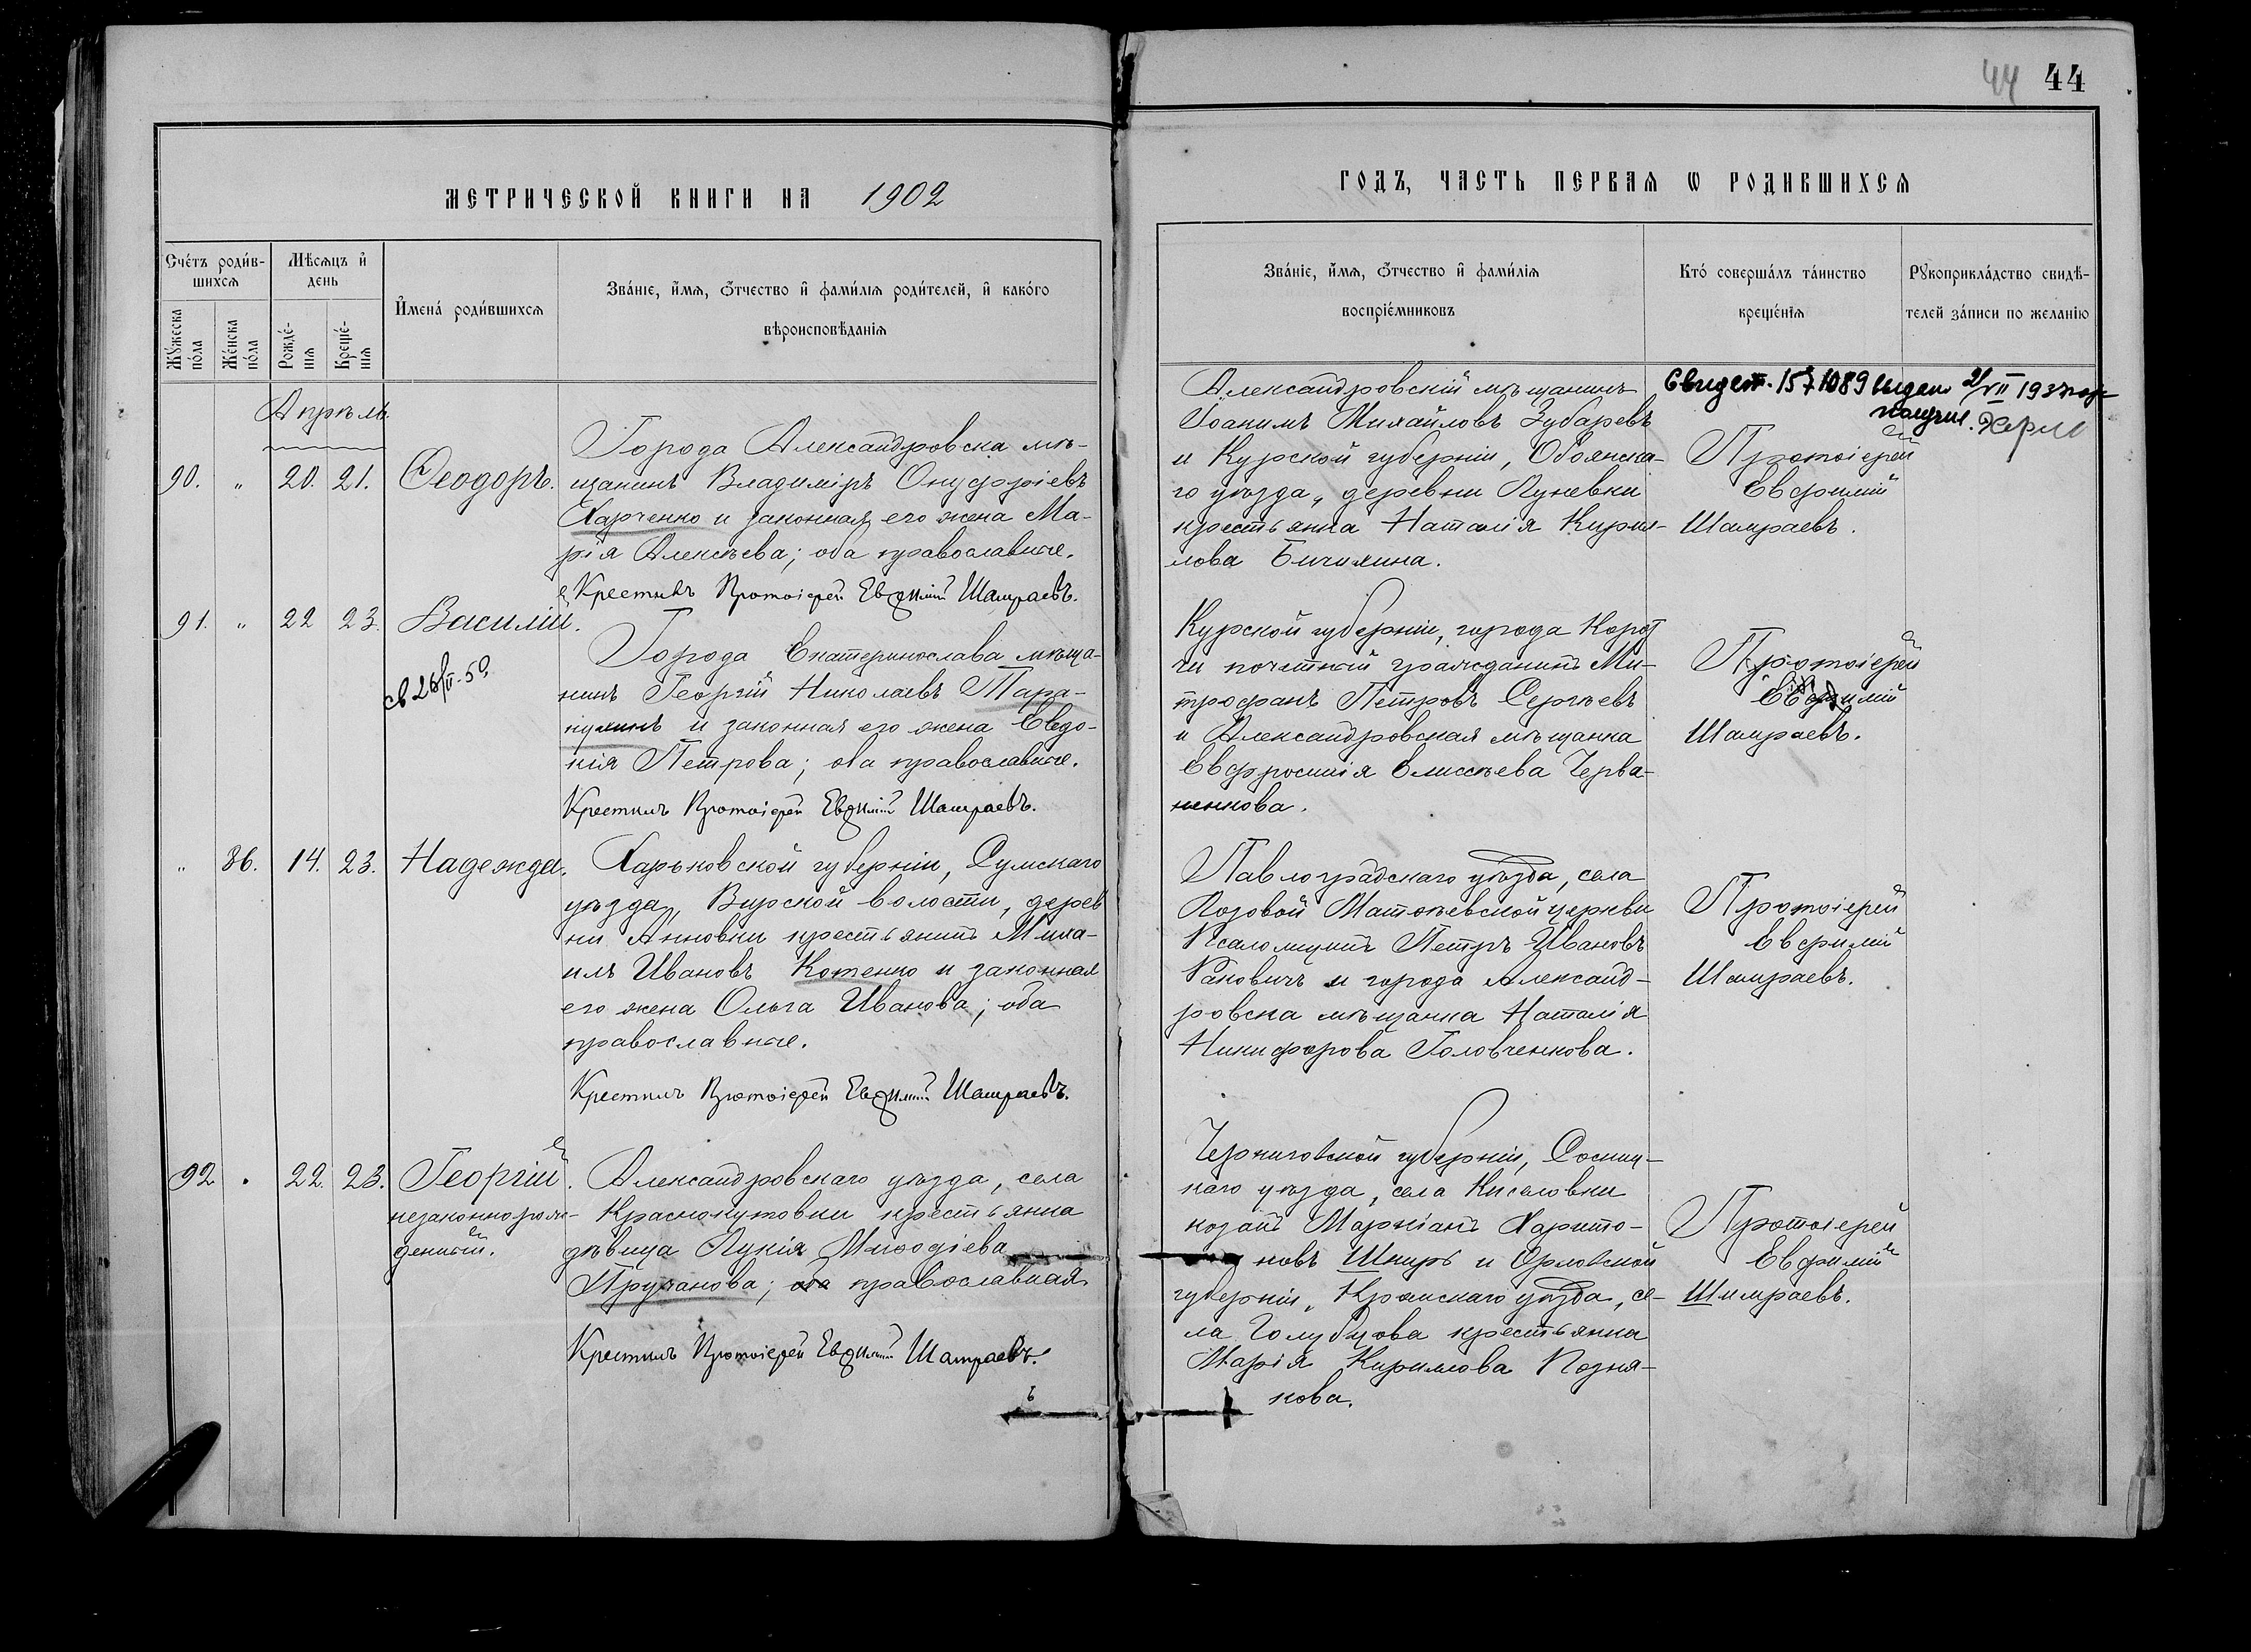 44 44
МЕТРИЧЕСКОЙ КНИГИ НА 1902
ГОДЪ, ЧАСТЬ ПЕРВАЯ Ѡ РОДИВШИХСЯ
Счéтъ роди́в-
шихсѧ
Мѣсѧцъ и҆
день
И҆менà роди́вшихсѧ
Звáнїе, и҆́мѧ, ѻ҆́тчество и҆ фами́лїѧ роди́телей, и҆ какóго
вѣроисповѣ́данїѧ
Мꙋ́жеска
пóла
Жéнска
пóла
Рождé-
нїѧ
Крещé-
нїѧ
Звáнїе, и҆́мѧ, ѻ҆́тчество и҆ фами́лїѧ
воспрїéмниковъ
Ктó совершáлъ тáинство
крещéнїѧ
Рꙋкоприклáдство свидѣ́-
телей зáписи по желáнїю
Апрѣль
90. „ 20. 21. Ѳеодоръ.
Города Александровска мѣ-
щанинъ Владиміръ Онуфріевъ
Харченко и законная его жена Ма-
рія Алексѣева; оба православные.
Крестилъ Протоіерей Евѳимій Шамраевъ.
Александровскій мѣщанинъ
Іоакимъ Михайловъ Зубаревъ
и Курской губерніи, Обоянска-
го уѣзда, деревни Луневки
крестьянка Наталія Кирил-
лова Бичихина.
Свидет. 1571089 выдано 21/VII 1937
получил.
Протоіерей
Евфимій
Шамраевъ.
91. „ 22 23. Василій.
св 26/IV-50
Города Екатеринослава мѣща-
нинъ Георгій Николаевъ Тара-
пухинъ и законная его жена Евдо-
кія Петрова; оба православные.
Крестилъ Протоіерей Евѳимій Шамраевъ.
Курской губерніи, города Коро-
чи почетный гражданинъ Ми-
трофанъ Петровъ Сергѣевъ
и Александровская мѣщанка
Евфросинія Елисѣева Черва-
ненкова.
Протоіерей
Евфимій
Шамраевъ.
„ 86. 14. 23. Надежда.
Харьковской губерніи, Сумскаго
уѣзда, Вирской волости, дерев
ни Анновки крестьянинъ Миха-
илъ Ивановъ Котенко и законная
его жена Ольга Иванова; оба
православные.
Крестилъ Протоіерей Евѳимій Шамраевъ.
Павлоградскаго уѣзда, села
Лозовой Матѳѣевской церкви
Псаломщикъ Петръ Ивановъ
Раковичъ и города Александ-
ровска мѣщанка Наталія
Никифорова Головченкова.
Протоіерей
Евфимій
Шамраевъ.
92 „ 22. 23. Георгій.
незаконнорож-
денный.
Александровскаго уѣзда, села
Краснокутовки крестьянка
дѣвица Лукія Меѳодіева
Пружанова; православная
Крестилъ Протоіерей Евѳимій Шамраевъ.
Черниговской губерніи, Сосниц-
каго уѣзда, села Киселовки
козакъ Маркіанъ Харито-
новъ Шкиръ и Орловской
губерніи, Кромскаго уѣзда, се-
ла Голубцова крестьянка
Марія Кириллова Позня-
кова.
Протоіерей
Евфимій
Шамраевъ.